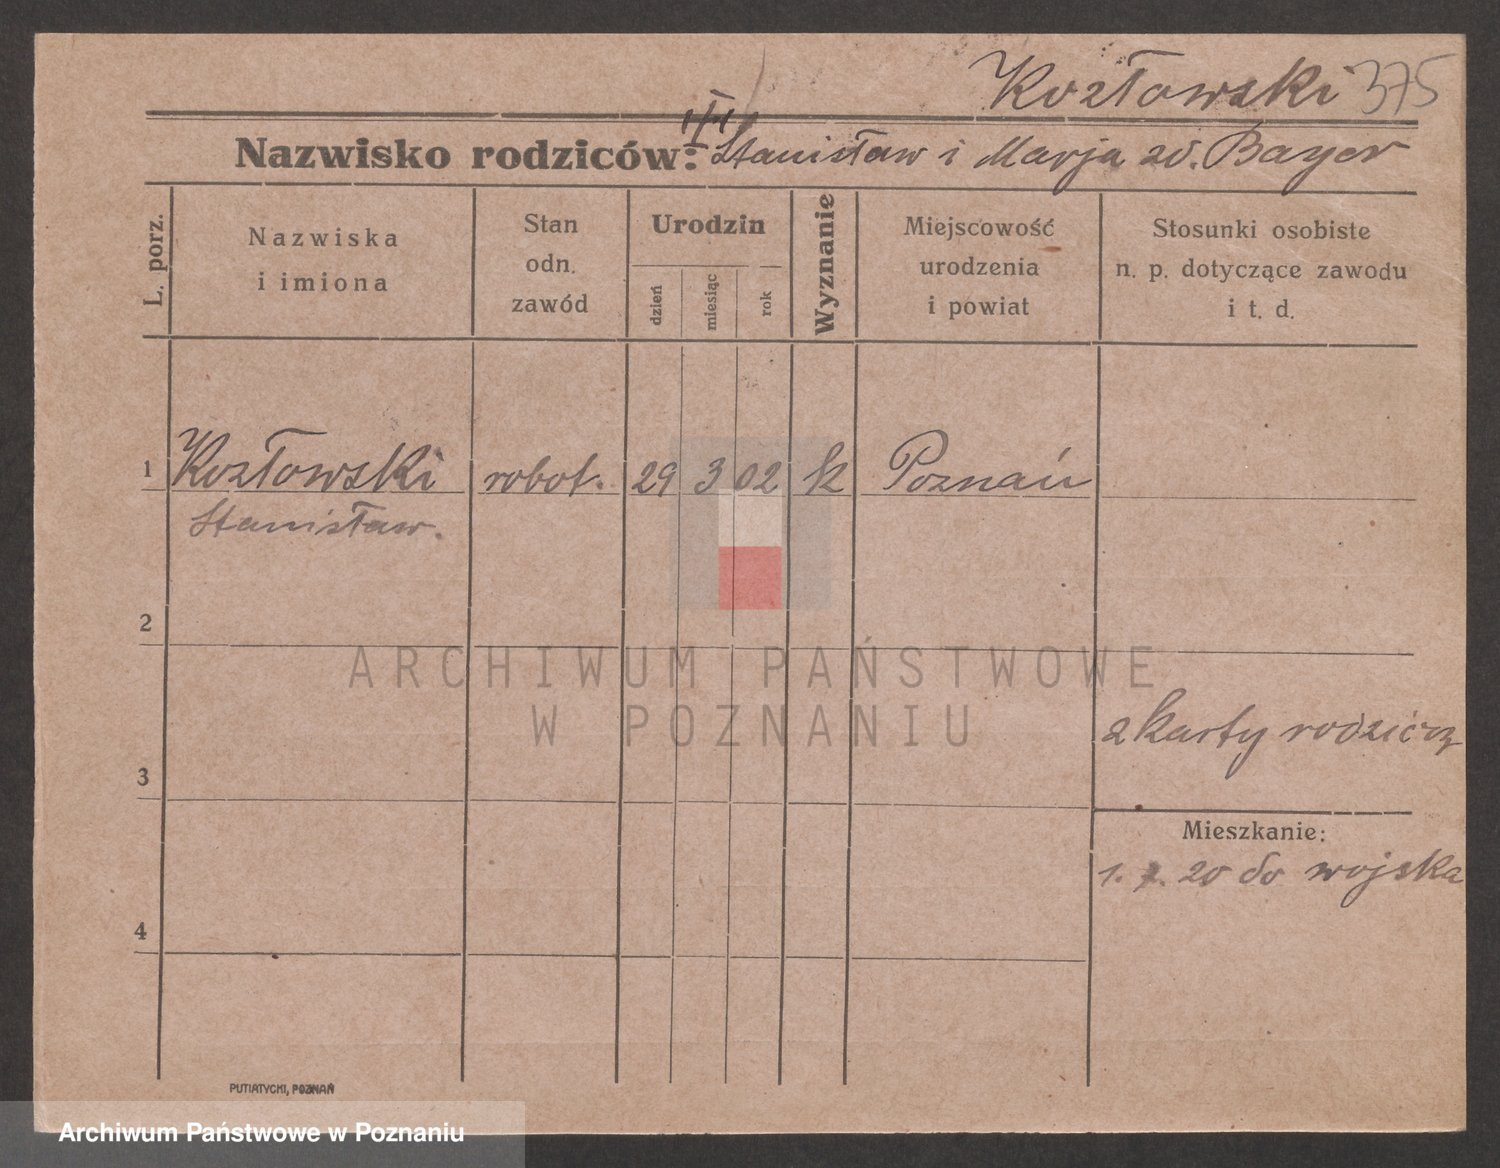 Kozłowski 375
Nazwisko rodziców: Stanisław i Marja zd. Bayer
L. porz.
Nazwiska
i imiona
Stan
odn.
zawód
Urodzin
dzień
miesiąc
rok
Wyznanie
Miejscowość
urodzenia
i powiat
Stosunki osobiste
n. p. dotyczące zawodu
i t. d.
1 Kozłowski robot. 29 3 02 k Poznań
Stanisław.
2
ARCHIWUM PAŃSTWOWE
W POZNANIU
z karty rodzicz
3
Mieszkanie:
1. 20 do wojska
4
PUTIATYCKI, POZNAŃ
Archiwum Państwowe w Poznaniu